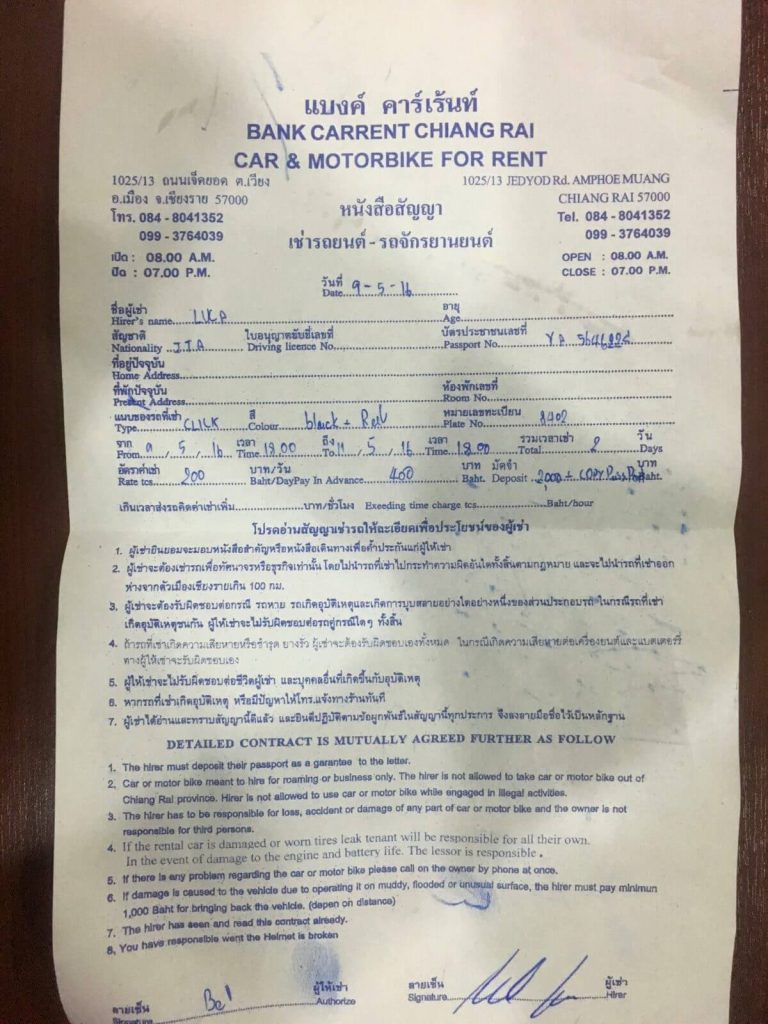 แบงค์ คาร์เร้นท์
BANK CARRENT CHIANG RAI
CAR & MOTORBIKE FOR RENT
1025/13 ถนนเจ็ดยอด ต.เวียง
อ.เมือง จ.เชียงราย 57000
โทร. 084 - 8041352
099 - 3764039
เปิด : 08.00 A.M.
ปิด : 07.00 P.M.
1025/13 JEDYOD Rd. AMPHOE MUANG
CHIANG RAI 57000
Tel. 084 - 8041352
099 - 3764039
OPEN : 08.00 A.M.
CLOSE : 07.00 P.M.
หนังสือสัญญา
เช่ารถยนต์ - รถจักรยานยนต์
วันที่
Date 9-5-16
ชื่อผู้เช่า อายุ
Hirer's name LUCA Age
สัญชาติ ใบอนุญาตขับขี่เลขที่ บัตรประชาชนเลขที่
Nationality ITA Driving licence No. Passport No. YA
ที่อยู่ปัจจุบัน
Home Address
ที่พักปัจจุบัน ห้องพักเลขที่
Present Address Room No.
แบบของรถที่เช่า สี หมายเลขทะเบียน
Type CLICK Colour black + Red Plate No. 8402
จาก เวลา ถึง เวลา รวมเวลาเช่า วัน
From 9 / 5 / 16 Time 18.00 To 11 / 5 / 16 Time 18.00 Total 2 Days
อัตราค่าเช่า บาท/วัน บาท มัดจำ บาท
Rate tcs 200 Baht/Day Pay In Advance 400 Baht. Deposit 2,000 + COPY PassPort Baht.
เกินเวลาส่งรถคิดค่าเช่าเพิ่ม บาท/ชั่วโมง Exeeding time charge tcs Baht/hour
โปรดอ่านสัญญาเช่ารถให้ละเอียดเพื่อประโยชน์ของผู้เช่า
1. ผู้เช่ายินยอมจะมอบหนังสือสำคัญหรือหนังสือเดินทางเพื่อค้ำประกันแก่ผู้ให้เช่า
2. ผู้เช่าจะต้องเช่ารถเพื่อทัศนาจรหรือธุรกิจเท่านั้น โดยไม่นำรถที่เช่าไปกระทำความผิดอันใดทั้งสิ้นตามกฎหมาย และจะไม่นำรถที่เช่าออก
ห่างจากตัวเมืองเชียงรายเกิน 100 กม.
3. ผู้เช่าจะต้องรับผิดชอบต่อกรณี รถหาย รถเกิดอุบัติเหตุและเกิดการบุบสลายอย่างใดอย่างหนึ่งของส่วนประกอบรถ ในกรณีรถที่เช่า
เกิดอุบัติเหตุชนกัน ผู้ให้เช่าจะไม่รับผิดชอบต่อรถคู่กรณีใดๆ ทั้งสิ้น
4. ถ้ารถที่เช่าเกิดความเสียหายหรือชำรุด ยางรั่ว ผู้เช่าจะต้องรับผิดชอบเองทั้งหมด ในกรณีเกิดความเสียหายต่อเครื่องยนต์และแบตเตอร์รี่
ทางผู้ให้เช่าจะรับผิดชอบเอง
5. ผู้ให้เช่าจะไม่รับผิดชอบต่อชีวิตผู้เช่า และบุคคลอื่นที่เกิดขึ้นกับอุบัติเหตุ
6. หากรถที่เช่าเกิดอุบัติเหตุ หรือมีปัญหาให้โทร.แจ้งทางร้านทันที
7. ผู้เช่าได้อ่านและทราบสัญญานี้ดีแล้ว และยินดีปฏิบัติตามข้อผูกพันธ์ในสัญญานี้ทุกประการ จึงลงลายมือชื่อไว้เป็นหลักฐาน
DETAILED CONTRACT IS MUTUALLY AGREED FURTHER AS FOLLOW
1. The hirer must deposit their passport as a garantee to the letter.
2. Car or motor bike meant to hire for roaming or business only. The hirer is not allowed to take car or motor bike out of
Chiang Rai province. Hirer is not allowed to use car or motor bike while engaged in illegal activities.
3. The hirer has to be responsible for loss, accident or damage of any part of car or motor bike and the owner is not
responsible for third persons.
4. If the rental car is damaged or worn tires leak tenant will be responsible for all their own.
In the event of damage to the engine and battery life. The lessor is responsible .
5. If there is any problem regarding the car or motor bike please call on the owner by phone at once.
6. If damage is caused to the vehicle due to operating it on muddy, flooded or unusual surface, the hirer must pay minimun
1,000 Baht for bringing back the vehicle. (depen on distance)
7. The hirer has seen and read this contract already.
8, You have responsible went the Helmet is broken
ลายเซ็น ผู้ให้เช่า ลายเซ็น ผู้เช่า
Signature Be Authorize Signature Hirer